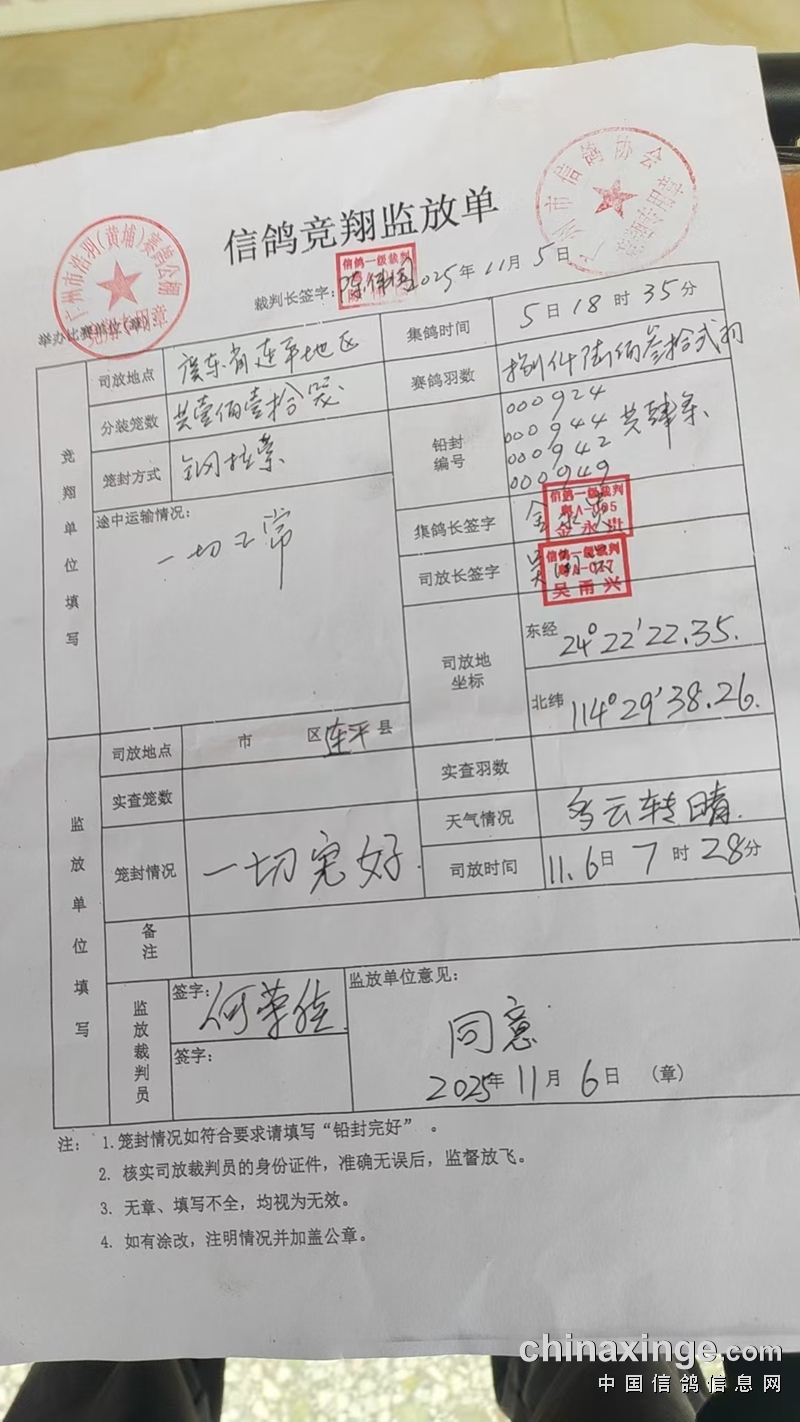 信鸽竞翔监放单
广州市浩羽(黄埔)赛鸽公棚
广州市信鸽协会
裁判长签字: 2025年11月5日
信鸽一级裁判
举办比赛单位(章):
竞翔单位填写
司放地点 广东省连平地区
集鸽时间 5日18时35分
分装笼数 共壹佰壹拾笼
赛鸽羽数 捌仟陆佰叁拾弍羽
笼封方式 钢拉索
铅封编号 000924
000944 共肆条
000942
000949
途中运输情况:
一切正常
集鸽长签字
信鸽一级裁判
金永贵
司放长签字
信鸽一级裁判
吴雨兴
司放地坐标
东经 24°22'22.35.
北纬 114°29'38.26.
监放单位填写
司放地点 市 区 连平县
实查羽数
实查笼数
天气情况 多云转晴.
笼封情况 一切完好.
司放时间 11.6日7时28分
备注
监放裁判员
签字:
签字:
监放单位意见:
同意
2025年11月6日 (章)
注: 1.笼封情况如符合要求请填写“铅封完好” 。
2. 核实司放裁判员的身份证件，准确无误后，监督放飞。
3. 无章、填写不全，均视为无效。
4. 如有涂改，注明情况并加盖公章。
chinaxinge.com
中国信鸽信息网